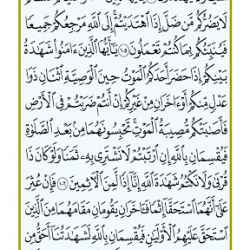 لَا يَضُرُّكُم مَّن ضَلَّ إِذَا ٱهْتَدَيْتُمْ ۚ إِلَى ٱللَّهِ مَرْجِعُكُمْ جَمِيعًا
فَيُنَبِّئُكُم بِمَا كُنتُمْ تَعْمَلُونَ ١٠٥ يَـٰٓأَيُّهَا ٱلَّذِينَ ءَامَنُوا۟ شَهَـٰدَةُ
بَيْنِكُمْ إِذَا حَضَرَ أَحَدَكُمُ ٱلْمَوْتُ حِينَ ٱلْوَصِيَّةِ ٱثْنَانِ ذَوَا
عَدْلٍ مِّنكُمْ أَوْ ءَاخَرَانِ مِنْ غَيْرِكُمْ إِنْ أَنتُمْ ضَرَبْتُمْ فِى ٱلْأَرْضِ
فَأَصَـٰبَتْكُم مُّصِيبَةُ ٱلْمَوْتِ ۚ تَحْبِسُونَهُمَا مِنۢ بَعْدِ ٱلصَّلَوٰةِ
فَيُقْسِمَانِ بِٱللَّهِ إِنِ ٱرْتَبْتُمْ لَا نَشْتَرِى بِهِۦ ثَمَنًا وَلَوْ كَانَ ذَا
قُرْبَىٰ ۙ وَلَا نَكْتُمُ شَهَـٰدَةَ ٱللَّهِ إِنَّآ إِذًا لَّمِنَ ٱلْـَٔاثِمِينَ ١٠٦ فَإِنْ عُثِرَ
عَلَىٰٓ أَنَّهُمَا ٱسْتَحَقَّآ إِثْمًا فَـَٔاخَرَانِ يَقُومَانِ مَقَامَهُمَا مِنَ ٱلَّذِينَ
ٱسْتَحَقَّ عَلَيْهِمُ ٱلْأَوْلَيَـٰنِ فَيُقْسِمَانِ بِٱللَّهِ لَشَهَـٰدَتُنَآ أَحَقُّ